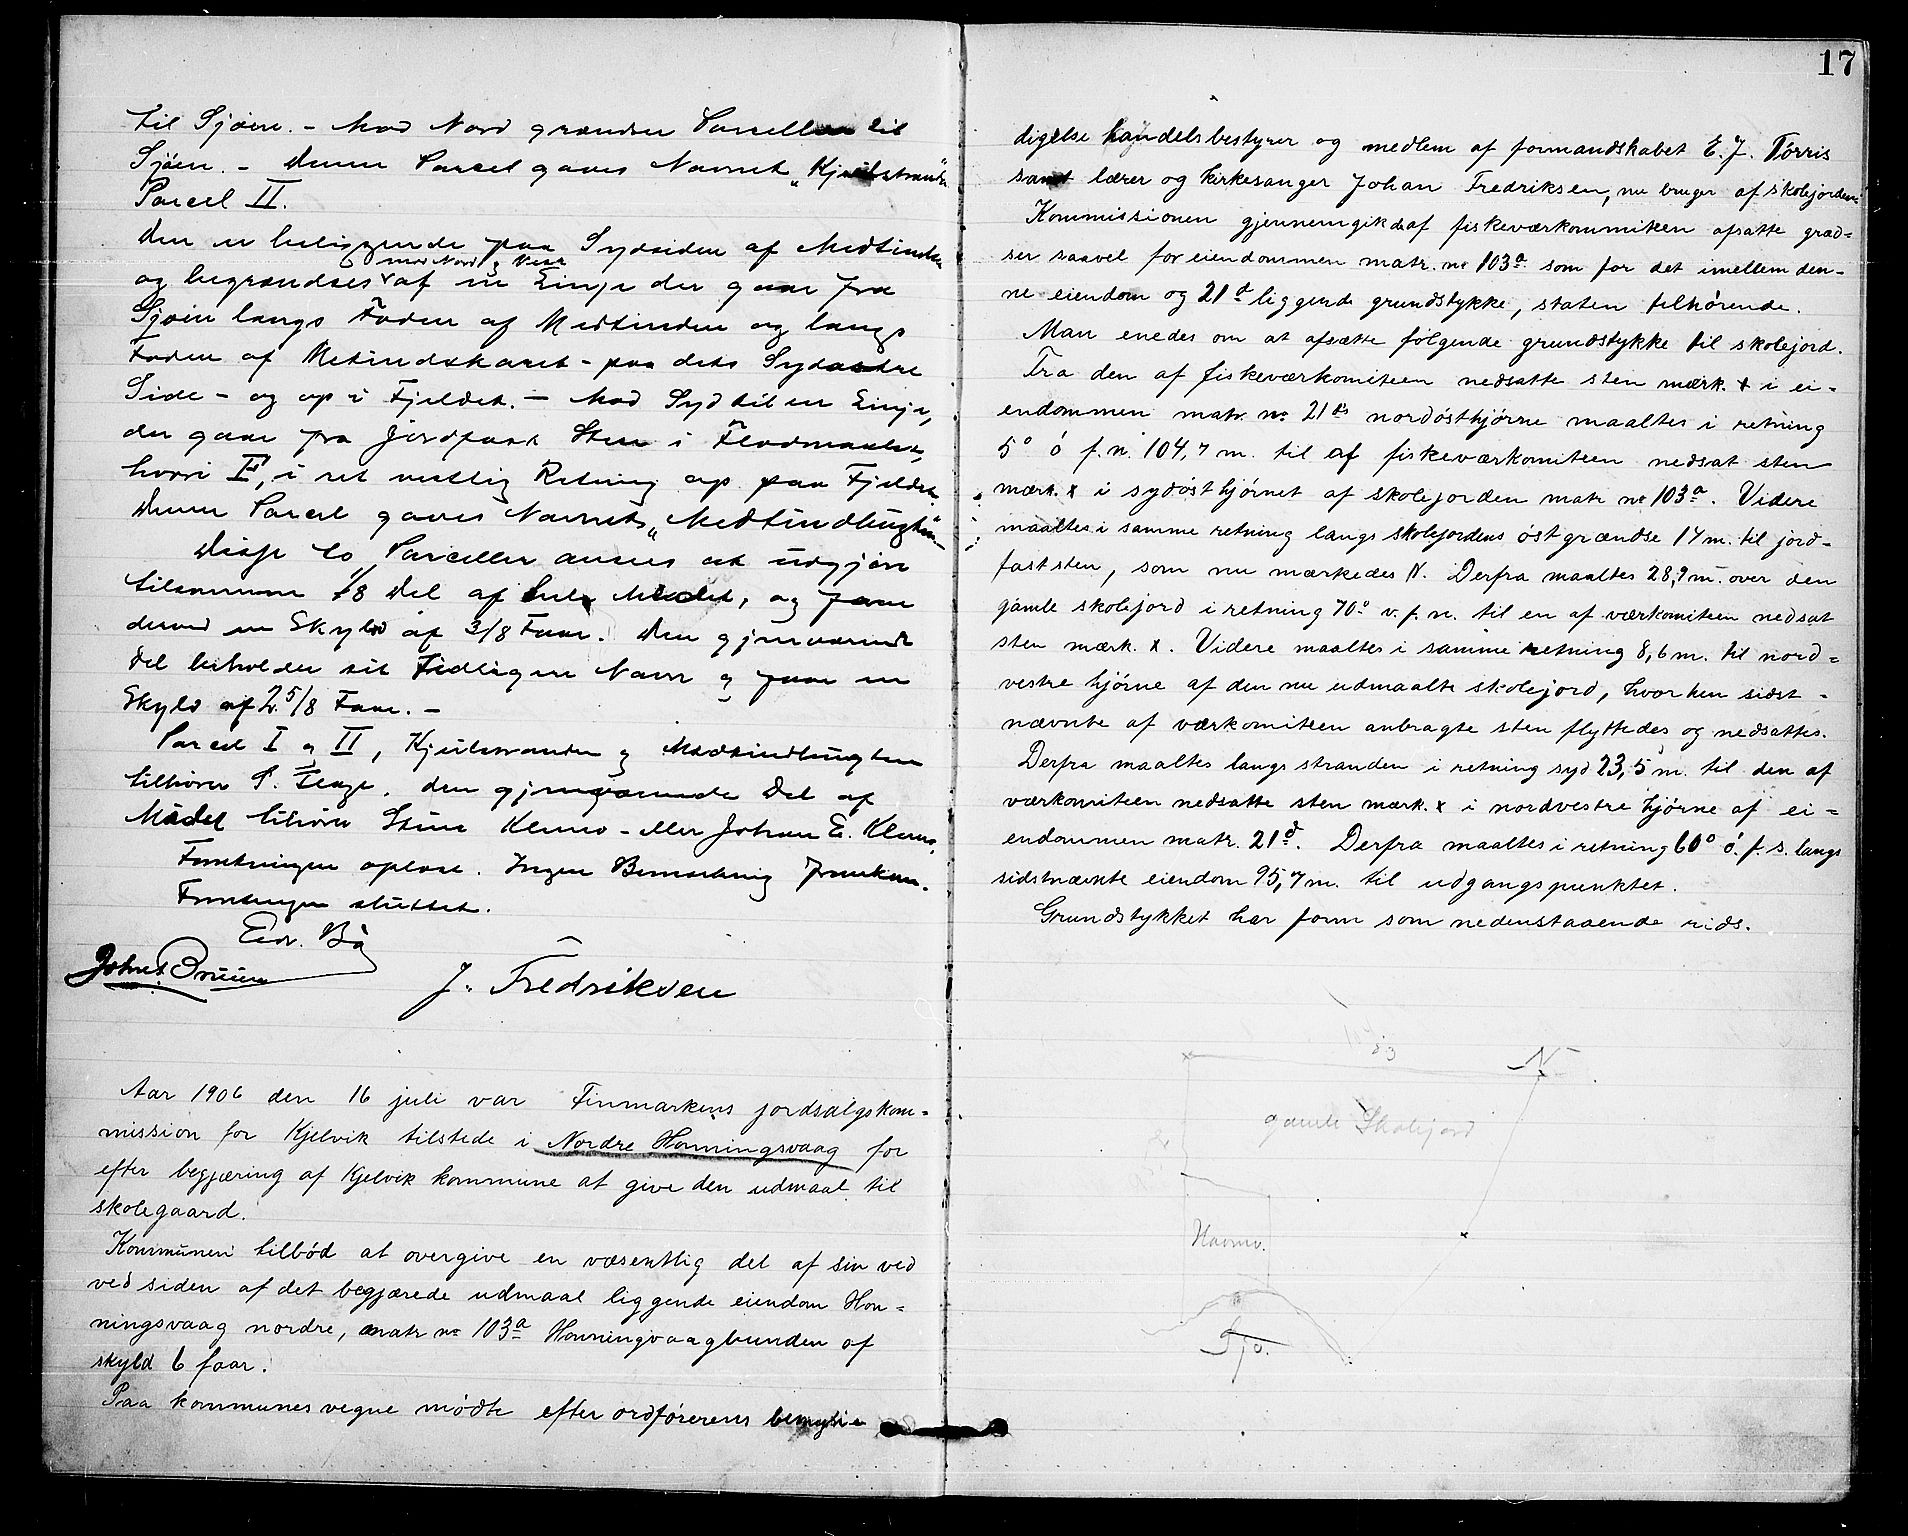 til Sjøen. - Mod Nord grændser Parcellen til
Sjøen. - Denne Parcel gaves Navnet „Kjulstranden"
Parcel II.
Den er beliggende paa Sydsiden af Medtinden
mod Nord og Vest
og begrændses af en Linje der gaar fra
Sjøen langs Foden af Medtinden og langs
Foden af Metindskaret - paa dets Sydøstre
Side - og op i Fjeldet. - Mod Syd til en Linje,
der gaar fra Jordfast Sten i Flodmaalet,
hvori F, i ret vestlig Retning op paa Fjeldet.
Denne Parcel gaves Navnet „Medtindbugten"
Disse to Parceller ansees at udgjøre
tilsammen 1/8 Del af hele Mødet, og faar
derved en Skyld af 3/8 Faar. Den gjenværende
Del beholder sit Tidligere Navn og faar en
Skyld af 2 5/8 Faar. -
Parcel I og II, Kjulstranden og Medtindbugten
tilhører P. . den gjenværende Del af
tilhører Stine Klemo - eller Johan E. Klemo.
Forretningen oplæst. Ingen Bemærkning fremkom.
Forretningen sluttet.
Edv. Bø
Johs. Bruun
J. Fredriksen
Aar 1906 den 16 juli var Finmarkens jordsalgskom=
mission for Kjelvik tilstede i Nordre Honningsvaag for
efter begjæring af Kjelvik kommune at give den udmaal til
skolegaard.
Kommunen tilbød at overgive en væsentlig del af sin ved
ved siden af det begjærede udmaal liggende eiendom Hon=
ningsvaag nordre, matr no 103a Honningvaagbunden af
skyld 6 faar.
Paa kommunes vegne mødte efter ordførerens bemyn-
17
digelse handelsbestyrer og medlem af formandskabet E. J. Tørris
samt lærer og kirkesanger Johan Fredriksen, nu bruger af skolejorden.
Kommissionen gjennemgik de af fiskeværkommiteen afsatte græd=
ser saavel for eiendommen matr. no 103a som for det imellem den-
ne eiendom og 21d liggende grundstykke, staten tilhørende.
Man enedes om at afsætte følgende grundstykke til skolejord.
Fra den af fiskeværkomiteen nedsatte sten mærk. x i ei-
endommen matr. no 21ds nordøsthjørne maaltes i retning
5° ø f. n. 104,7 m. til af fiskeværkomiteen nedsat sten
mærk. x i sydøsthjørnet af skolejorden matr no 103a. Videre
maaltes i samme retning langs skolejordens østgrændse 17 m. til jord-
fast sten, som nu mærkedes N. Derfra maaltes 28,9 m. over den
gamle skolejord i retning 70° v. f. n. til en af værkomiteen nedsat
sten mærk. x. Videre maaltes i samme retning 8,6 m. til nord=
vestre hjørne af den nu udmaalte skolejord, hvor hen sidst-
nævnte af værkomiteen anbragte sten flyttedes og nedsattes.
Derfra maaltes langs stranden i retning syd 23,5 m. til den af
værkomiteen nedsatte sten mærk. x i nordvestre hjørne af ei=
endommen matr. 21d. Derfra maaltes i retning 60° ø. f. s. langs
sidstnævnte eiendom 95,7 m. til udgangspunktet.
Grundstykket har form som nedenstaaende rids.
N
gamle Skolejord
Havnv.
Sjø.